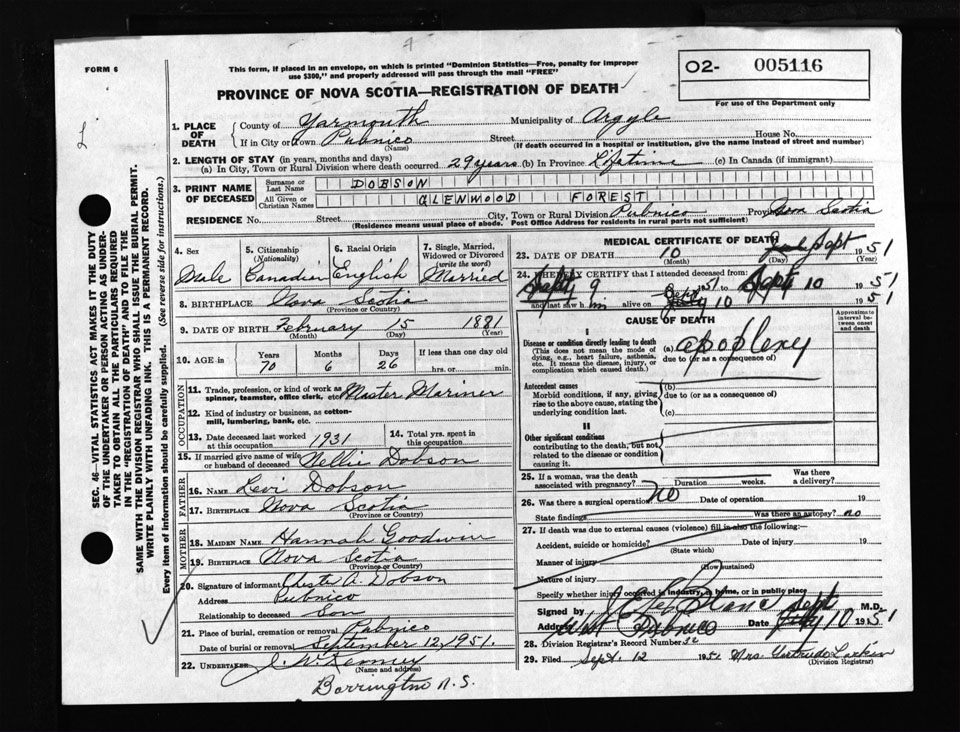 FORM 6
This form, if placed in an envelope, on which is printed "Dominion Statistics—Free, penalty for improper
use $300," and properly addressed will pass through the mail "FREE"
O2- 005116
For use of the Department only
PROVINCE OF NOVA SCOTIA—REGISTRATION OF DEATH
1. PLACE OF DEATH { County of Yarmouth Municipality of Argyle
If in City or Town Pubnico (Name) Street House No.
(If death occurred in a hospital or institution, give the name instead of street and number)
2. LENGTH OF STAY (in years, months and days)
(a) In City, Town or Rural Division where death occurred 29 years (b) In Province Lifetime (c) In Canada (if immigrant)
3. PRINT NAME OF DECEASED { Surname or Last Name DOBSON
All Given or Christian Names GLENWOOD FOREST
RESIDENCE No. Street City, Town or Rural Division Pubnico Province Nova Scotia
(Residence means usual place of abode. Post Office Address for residents in rural parts not sufficient)
4. Sex Male
5. Citizenship (Nationality) Canadian
6. Racial Origin English
7. Single, Married, Widowed or Divorced (write the word) Married
8. BIRTHPLACE Nova Scotia
(Province or Country)
9. DATE OF BIRTH February 15 1881
(Month) (Day) (Year)
10. AGE in { Years 70 Months 6 Days 26 If less than one day old hrs. or min.
OCCUPATION
11. Trade, profession, or kind of work as spinner, teamster, office clerk, etc. Master Mariner
12. Kind of industry or business, as cotton-mill, lumbering, bank, etc.
13. Date deceased last worked at this occupation 1931
14. Total yrs. spent in this occupation
15. If married give name of wife or husband of deceased Nellie Dobson
FATHER
16. NAME Levi Dobson
17. BIRTHPLACE Nova Scotia
(Province or Country)
MOTHER
18. MAIDEN NAME Hannah Goodwin
19. BIRTHPLACE Nova Scotia
(Province or Country)
20. Signature of informant A. Dobson
Address Pubnico
Relationship to deceased Son
21. Place of burial, cremation or removal Pubnico
Date of burial or removal September 12, 1951.
22. UNDERTAKER J. W. Kenney
(Name and address)
Barrington N.S.
MEDICAL CERTIFICATE OF DEATH
23. DATE OF DEATH 10 Sept 1951
(Month) (Day) (Year)
24. I HEREBY CERTIFY that I attended deceased from:
Sept 9 51 to Sept 10 1951
and last saw him alive on Sept 10 1951
CAUSE OF DEATH
Approximate interval between onset and death
I
Disease or condition directly leading to death (a) apoplexy
(This does not mean the mode of dying, e.g., heart failure, asthenia, etc. It means the disease, injury, or complication which caused death.)
due to (or as a consequence of)
Antecedent causes (b)
Morbid conditions, if any, giving rise to the above cause, stating the underlying condition last.
due to (or as a consequence of)
(c)
II
Other significant conditions
contributing to the death, but not related to the disease or condition causing it.
25. If a woman, was the death associated with pregnancy? Duration weeks. Was there a delivery?
26. Was there a surgical operation? NO Date of operation 19
State findings Was there an autopsy? no
27. If death was due to external causes (violence) fill in also the following:—
Accident, suicide or homicide? Date of injury 19
(State which)
Manner of injury
(How sustained)
Nature of injury
Specify whether injury occurred in industry, in home, or in public place
Signed by LeBlanc M.D.
Address West Pubnico Date Sept 10 1951
28. Division Registrar's Record Number 32
29. Filed Sept. 12 1951 Mrs. Gertrude Larkin
(Division Registrar)
SEC. 46—VITAL STATISTICS ACT MAKES IT THE DUTY
OF THE UNDERTAKER OR PERSON ACTING AS UNDER-
TAKER TO OBTAIN ALL THE PARTICULARS REQUIRED
IN THE "REGISTRATION OF DEATH" AND TO FILE THE
SAME WITH THE DIVISION REGISTRAR WHO SHALL ISSUE THE BURIAL PERMIT.
WRITE PLAINLY WITH UNFADING INK. THIS IS A PERMANENT RECORD.
Every item of information should be carefully supplied. (See reverse side for instructions.)